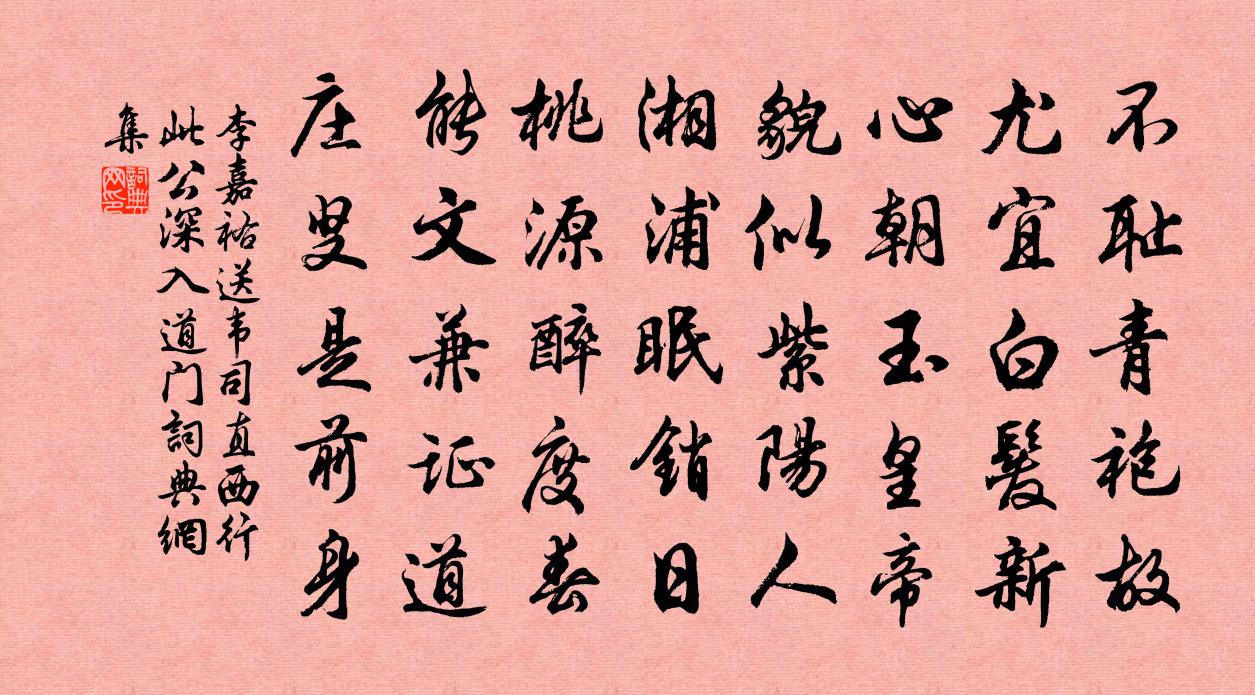 不耻青袍故
尤宜白髮新
心朝玉皇帝
貌似紫陽人
湘浦眠銷日
桃源醉度春
能文兼证道
庄叟是前身
李嘉祐送韦司直西行
此公深入道门詞典網
集
詞典網印